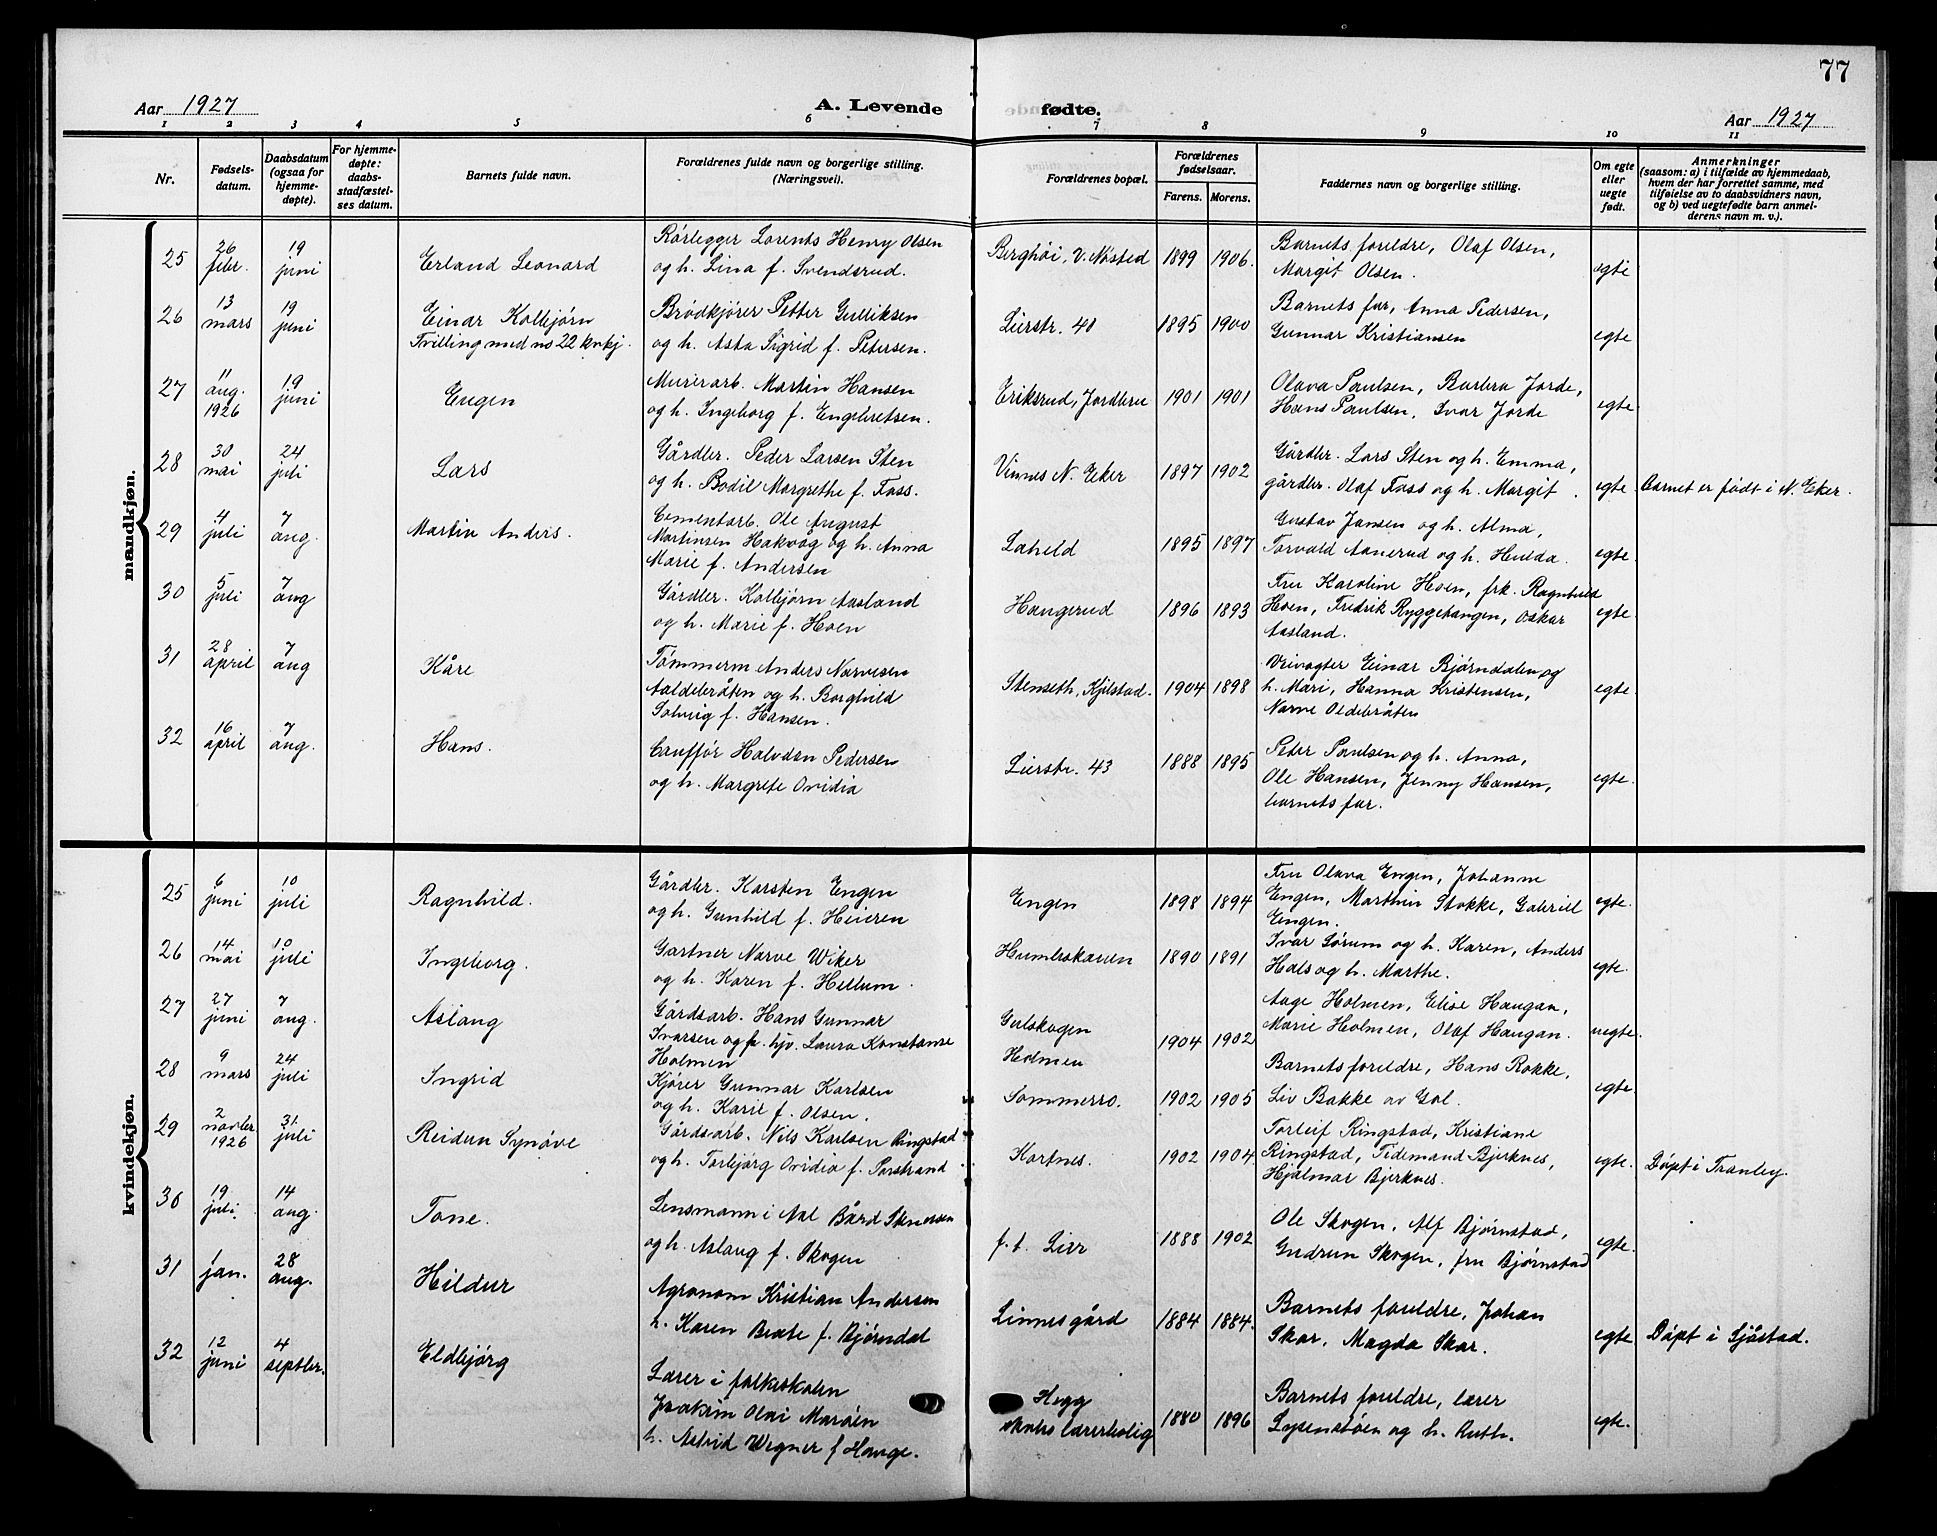 77
Aar 1927 A. Levende fødte. Aar 1927
1 2 3 4 5 6 7 8 9 10 11
Nr.
Fødsels-
datum.
Daabsdatum
(ogsaa for
hjemme-
døpte).
For hjemme-
døpte:
daabs-
stadfæstel-
ses datum.
Barnets fulde navn.
Forældrenes fulde navn og borgerlige stilling.
(Næringsvei).
Forældrenes bopæl.
Forældrenes
fødselsaar.
Farens. Morens.
Faddernes navn og borgerlige stilling.
Om egte
eller
uegte
født.
Anmerkninger
(saasom: a) i tilfælde av hjemmedaab,
hvem der har forrettet samme, med
tilføielse av to daabsvidners navn,
og b) ved uegtefødte barn anmel-
derens navn m. v.).
mandkjøn.
25
26
febr.
19
juni
Erland Leonard
Rørlegger Lorents Henry Olsen
og h. Lina f. Svendsrud.
Berghöi, v. Nøsted
1899 1906.
Barnets foreldre, Olaf Olsen,
Margit Olsen.
egte
26
13
mars
19
juni
Einar Kolbjørn
Tvilling med no 22 kvkj.
Brödkjører Petter Gulliksen
og h. Asta Sigrid f. Petersen.
Lierstr. 40
1895 1900
Barnets far, Anna Pedersen,
Gunnar Kristiansen
egte
27
11
aug.
1926
19
juni
Eugen
Murerarb. Martin Hansen
og h. Ingeborg f. Engebretsen.
Eriksrud, Jordbru
1901 1901
Olava Paulsen, Barbra Jorde,
Hans Paulsen, Ivar Jorde
egte
28
30
mai
24
juli
Lars
Gårdbr. Peder Larsen Sten
og h. Bodil Margrethe f. Foss.
Vinnes N. Eker
1897 1902
Gårdbr. Lars Sten og h. Emma,
gårdbr. Olaf Foss og h. Margit.
egte Barnet er født i N. Eker.
29
4
juli
7
aug.
Martin Anders.
Cementarb. Ole August
Martinsen Hakvåg og h. Anna
Marie f. Andersen
Laheld
1895 1897
Gustav Jansen og h. Alma,
Torvald Aanerud og h. Hulda.
egte
30
5
juli
7
aug
Gårdbr. Kolbjørn Aasland
og h. Marie f. Hoen
Haugerud
1896 1893
Fru Karoline Hoen, frk. Ragnhild
Hoen, Fredrik Ryggetangen, Oskar
Aasland.
egte
31
28
april
7
aug
Kåre
Tømmerm Anders Narvesen
Aaldebråten og h. Borghild
Solveig f. Hansen.
Stenseth, Kjelstad.
1904 1898
Vrivogter Einar Bjørndalen og
h. Mari, Hanna Kristensen,
Narve Oldebråten
egte
32
16
april
7
aug.
Hans.
Cauffør Halvdan Pedersen
og h. Margrete Ovidia
Lierstr. 43
1888 1895
Peter Paulsen og h. Anna,
Ole Hansen, Jenny Hansen,
barnets far.
egte.
kvindekjøn.
25
6
juni
10
juli
Ragnhild.
Gårdbr. Karsten Engen
og h. Gunhild f. Heieren
Engen
1898 1894
Fru Olava Engen, Johanne
Engen, Marthin Stokke, Gabriel
Engen.
egte.
26
14
mai
10
juli
Ingeborg.
Gartner Narve Wiker
og h. Karen f. Hellum.
Humleskauen
1890 1891
Ivar Sørum og h. Karen, Anders
Hals og h. Marthe.
egte.
27
27
juni
7
aug.
Aslaug
Gårdsarb. Hans Gunnar
Ivarsen og hjv. Laura Konstanse
Holmen
Gulskogen
Holmen
1904 1902
Aage Holmen, Elise Haugan,
Marie Holmen, Olaf Haugan.
uegte.
28
9
mars
24
juli
Ingrid
Kjører Gunnar Karlsen
og h. Karie f. Olsen.
Sommerro.
1902 1905
Barnets foreldre, Hans Rokke,
Liv Bakke av Gol.
egte
29
2
novbr
1926
31.
juli
Reidun Synöve
Gårdsarb. Nils Karlsen Ringstad
og h. Torbjørg Ovidia f. Parstrand.
Kortnes.
1902 1904
Torleif Ringstad, Kristiane
Ringstad, Tidemand Bjerknes,
Hjalmar Bjerknes.
egte. Döpt i Tranby.
30
19
juli.
14
aug.
Tone.
Lensmann i Aal Bård Sknersen
og h. Aslaug f. Skogen
f. t. Lier
1888 1902
Ole Skogen, Alf Bjørnstad,
Gudrun Skogen, fru Bjørnstad
egte.
31
jan.
28
aug.
Hildur
Agronom Kristian Andersen
h. Karen Beate f. Bjørndal
Linnesgård
1884 1884.
Barnets foreldre, Johan
Skar, Magda Skar.
egte Döpt i Sjåstad.
32
12
juni
4
septbr.
Eldbjørg
Lærer i folkeskolen
Joakim Olai Maröen
h. Astrid Wegner f Hauge.
Hegg
skoles lærerbolig
1880 1896
Barnets foreldre, lærer
Lysenstöen og h. Ruth.
egte.